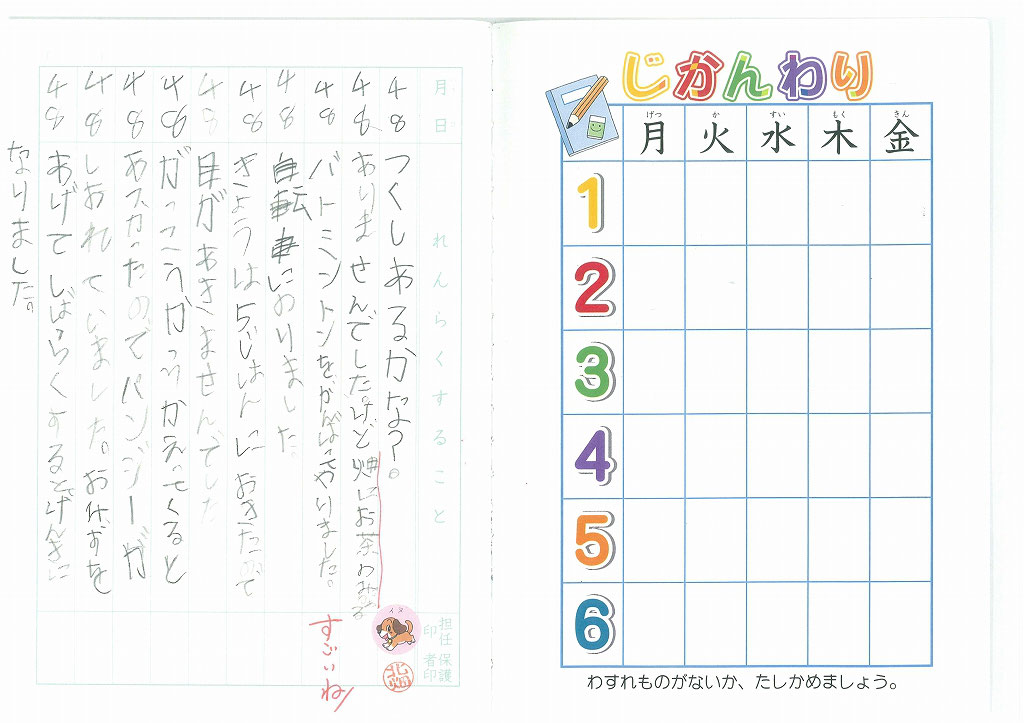 じかんわり
げつ か すい もく きん
月 火 水 木 金
1
2
3
4
5
6
わすれものがないか、たしかめましょう。
月日 れんらくすること 担任印 保護者印
4 8 つくしあるかな？。
4 8 ありませんでした。けど
4 8 バトミントンをがんばってやりました。
4 8 自転車におりました。
4 8 きょうは5じはんにおきたので
4 8 目があきませんでした
4 8 がっこうがっかえってくると
4 8 あつかったのでパンジーが
4 8 しおれていました。お水ずを
4 8 あげてしばらくするとげんきに
なりました。
イヌ
すごいね